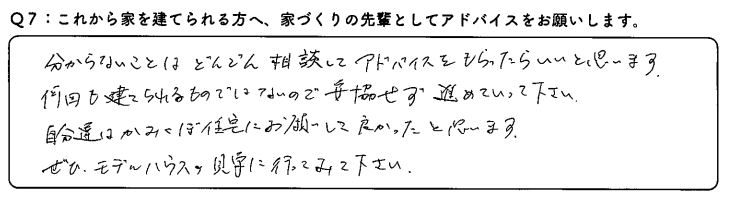 Q7：これから家を建てられる方へ、家づくりの先輩としてアドバイスをお願いします。
分からないことはどんどん相談してアドバイスをもらったらいいと思います。
何回も建てられるものではないので妥協せず進めていって下さい。
自分達はかみくぼ住宅にお願いして良かったと思います。
ぜひ、モデルハウスの見学に行ってみて下さい。